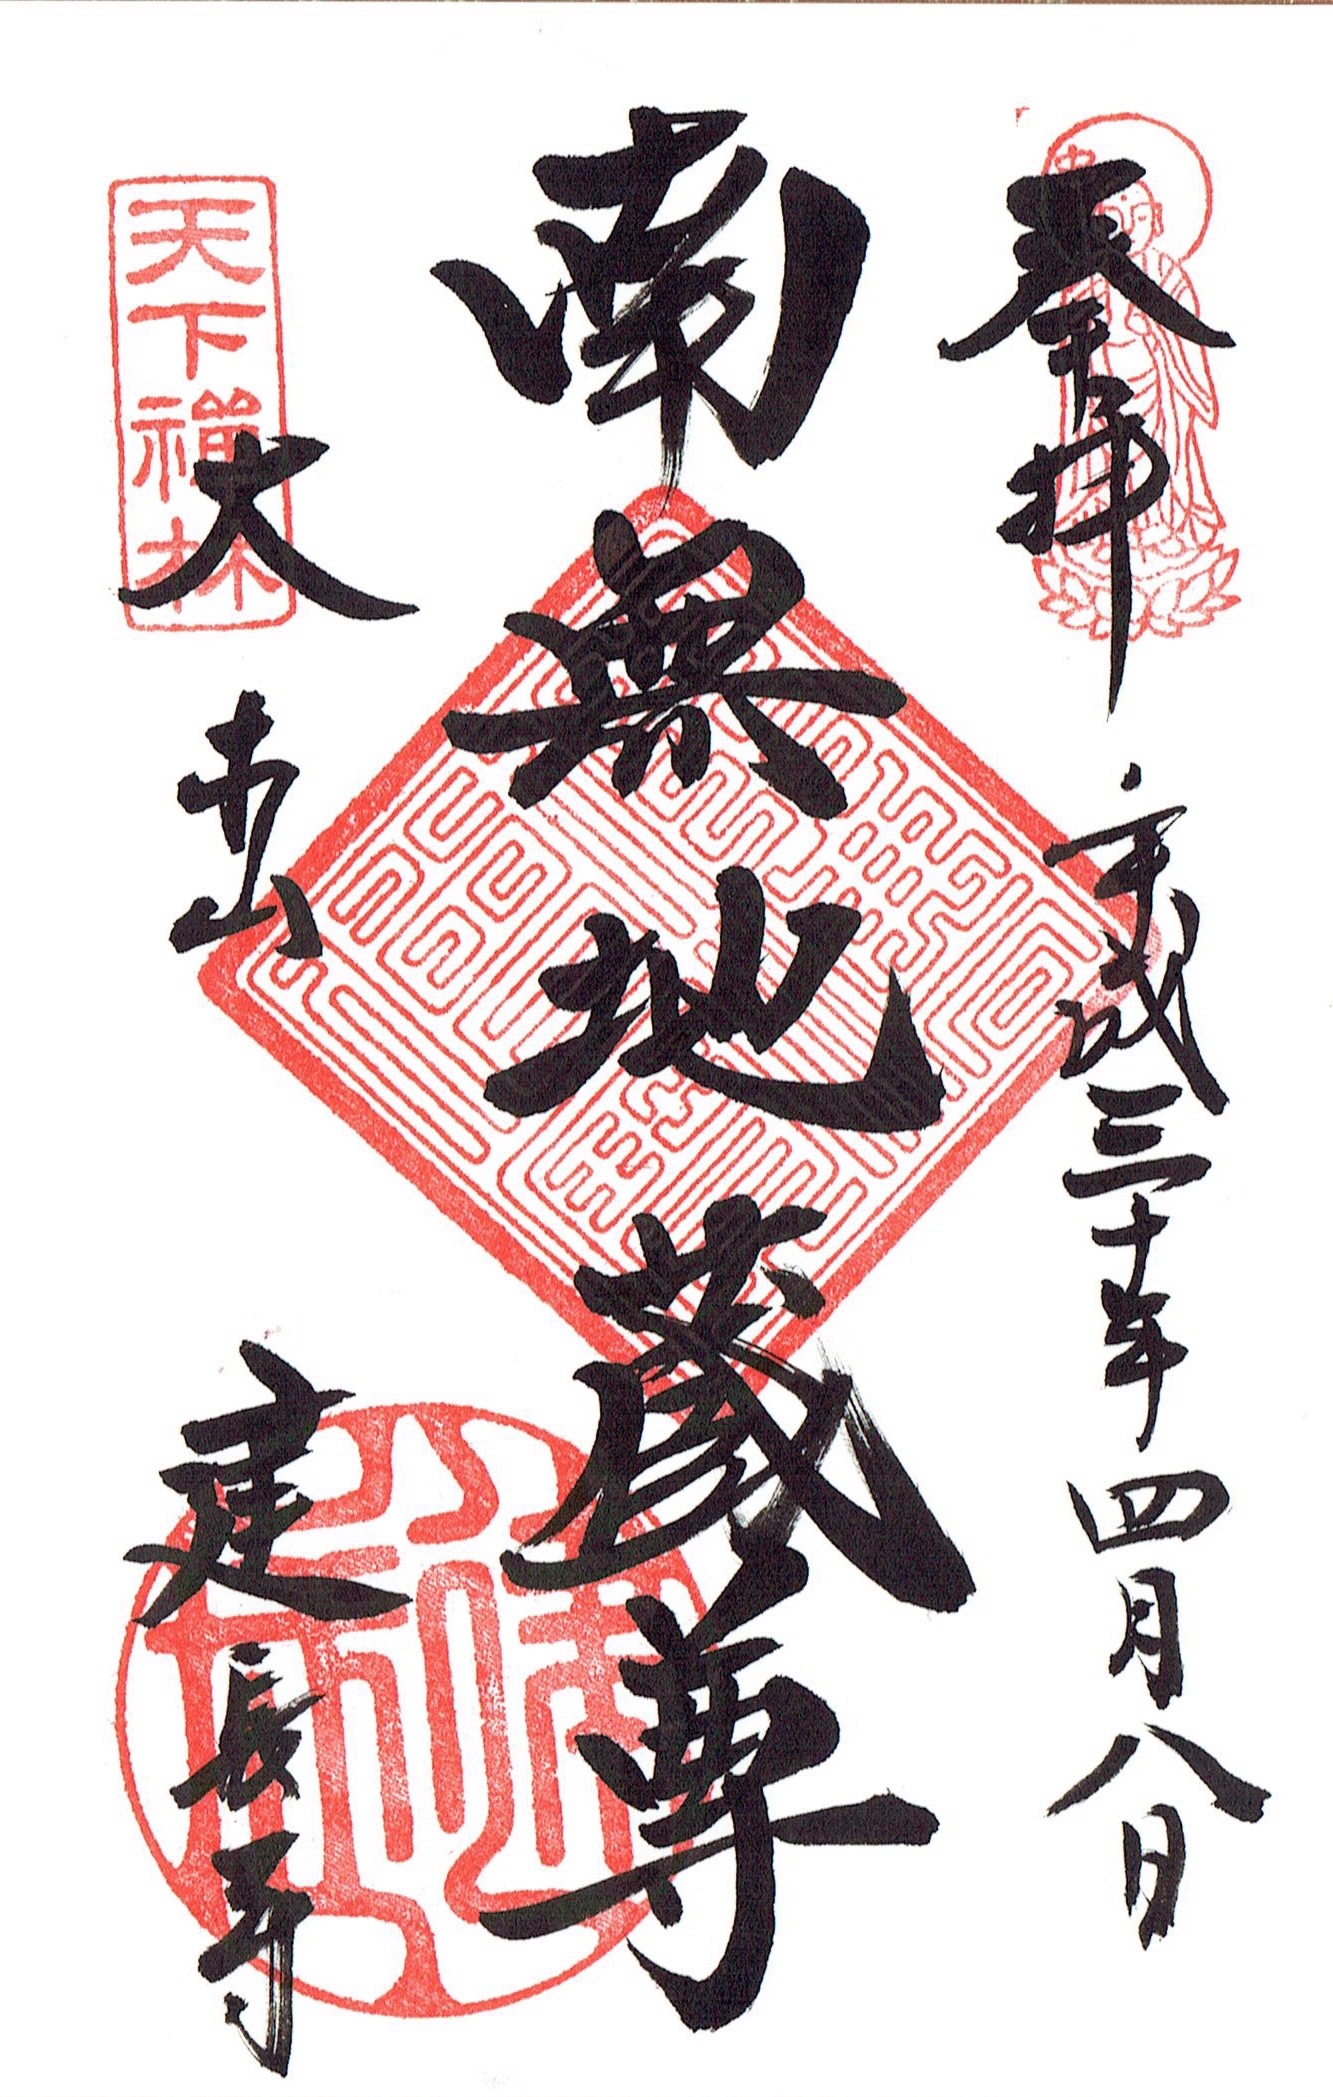 奉拝
平成三十年四月八日
南無地蔵尊
天下禅林
大本山
建長寺